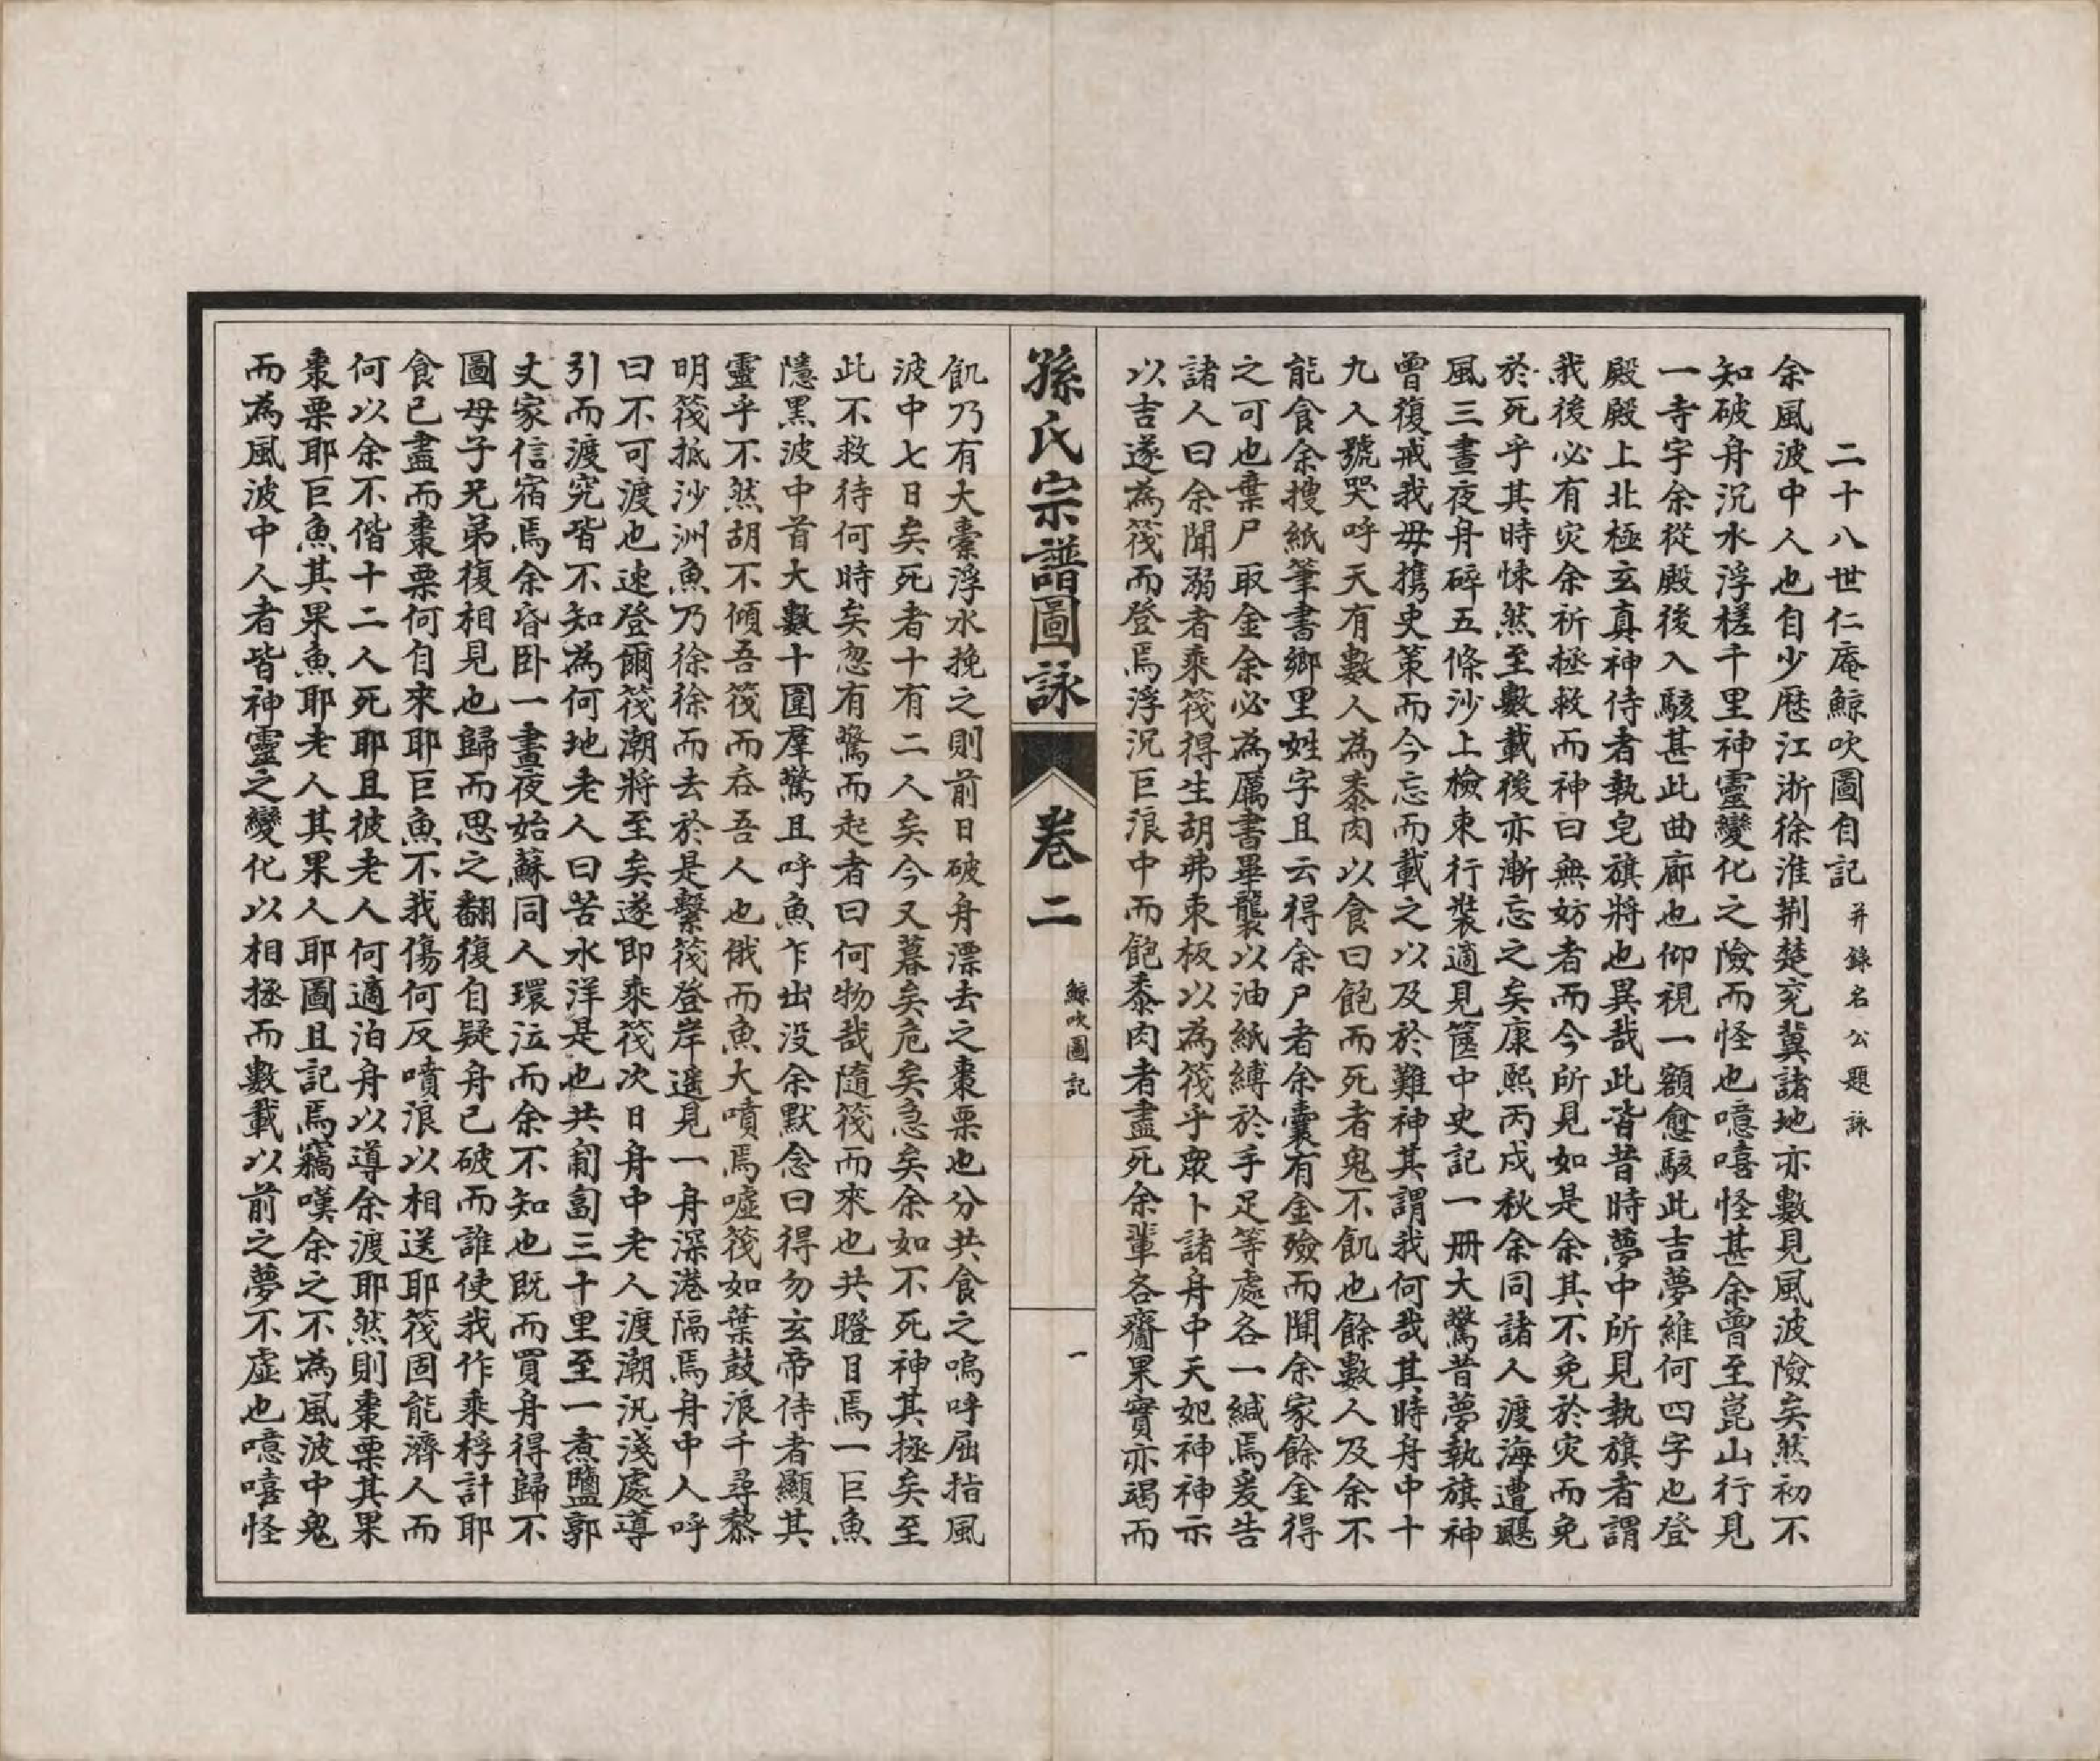 二十八世仁庵鯨吹圖自記并錄名公題詠
余風波中人也自少歷江浙徐淮荆楚兖冀諸地亦數見風波險矣然初不
知破舟沉水浮槎千里神靈變化之險而怪也噫嘻怪甚余曾至崑山行見
一寺宇余從殿後入駭甚此曲廊也仰視一額愈駭此吉夢維何四字也登
殿殿上北極玄真神侍者執皂旗將也異哉此皆昔時夢中所見執旗者謂
我後必有灾余祈拯救而神曰無妨者而今所見如是余其不免於灾而免
於死乎其時悚然至數載後亦漸忘之矣康熙丙戌秋余同諸人渡海遭颶
風三晝夜舟碎五條沙上檢束行裝適見篋中史記一册大驚昔夢執旗神
曾復戒我毋攜史策而今忘而載之以及於難神其謂我何哉其時舟中十
九人號哭呼天有數人為黍肉以食曰飽而死者鬼不飢也餘數人及余不
能食余搜紙筆書鄉里姓字且云得余尸者余囊有金殮而聞余家餘金得
之可也棄尸取金余必為厲書畢襲以油紙縛於手足等處各一緘焉爰告
諸人曰余聞溺者乘筏得生胡弗束板以為筏乎眾卜諸舟中天妃神神示
以吉遂為筏而登焉浮沉巨浪中而飽黍肉者盡死余輩各齎果實亦竭而
孫氏宗譜圖詠
卷二
鯨吹圖記
一
飢乃有大橐浮水挽之則前日破舟漂去之棗栗也分共食之嗚呼屈指風
波中七日矣死者十有二人矣今又暮矣危矣急矣余如不死神其拯矣至
此不救待何時矣忽有驚而起者曰何物哉隨筏而來也共瞪目焉一巨魚
隱黑波中首大數十圍羣驚且呼魚乍出没余默念曰得勿玄帝侍者顯其
靈乎不然胡不傾吾筏而吞吾人也俄而魚大噴焉噓筏如葉鼓浪千尋黎
明筏抵沙洲魚乃徐徐而去於是繫筏登岸遥見一舟深港隔焉舟中人呼
曰不可渡也速登爾筏潮將至矣遂即乘筏次日舟中老人渡潮汛淺處導
引而渡究皆不知為何地老人曰苦水洋是也共匍匐三十里至一煮鹽郭
丈家信宿焉余昏卧一晝夜始蘇同人環泣而余不知也既而買舟得歸不
圖母子兄弟復相見也歸而思之翻復自疑舟已破而誰使我作乘桴計耶
食已盡而棗栗何自來耶巨魚不我傷何反噴浪以相送耶筏固能濟人而
何以余不偕十二人死耶且彼老人何適泊舟以導余渡耶然則棗栗其果
棗栗耶巨魚其果魚耶老人其果人耶圖且記焉竊嘆余之不為風波中鬼
而為風波中人者皆神靈之變化以相拯而數載以前之夢不虛也噫嘻怪